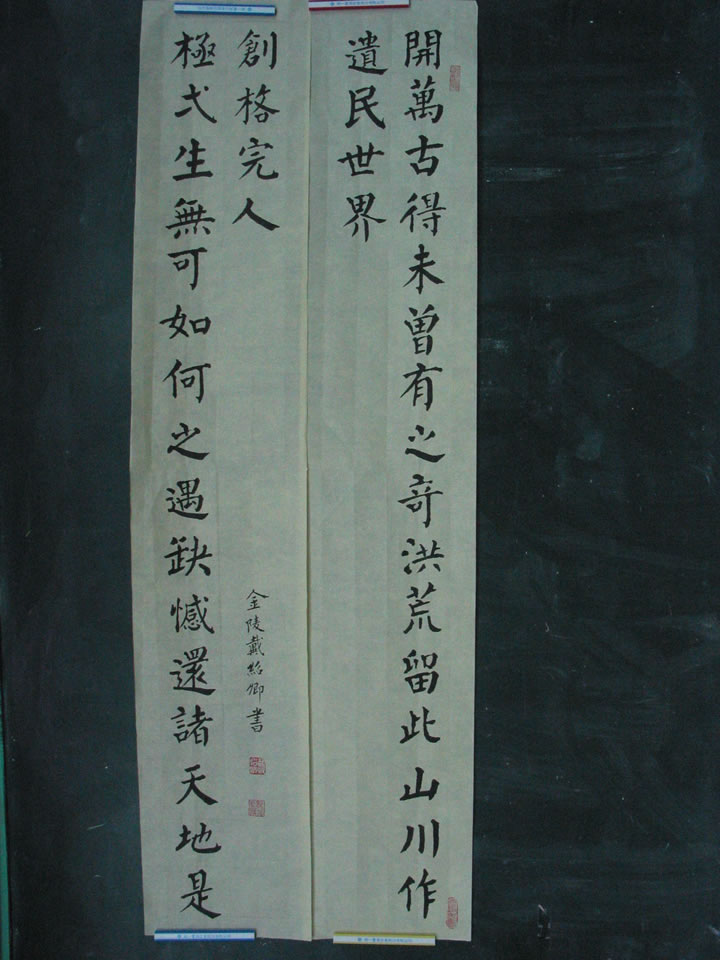 開萬古得未曾有之竒洪荒留此山川作
遺民世界
極弌生無可如何之遇缺憾還諸天地是
創格完人
金陵戴紹卿書